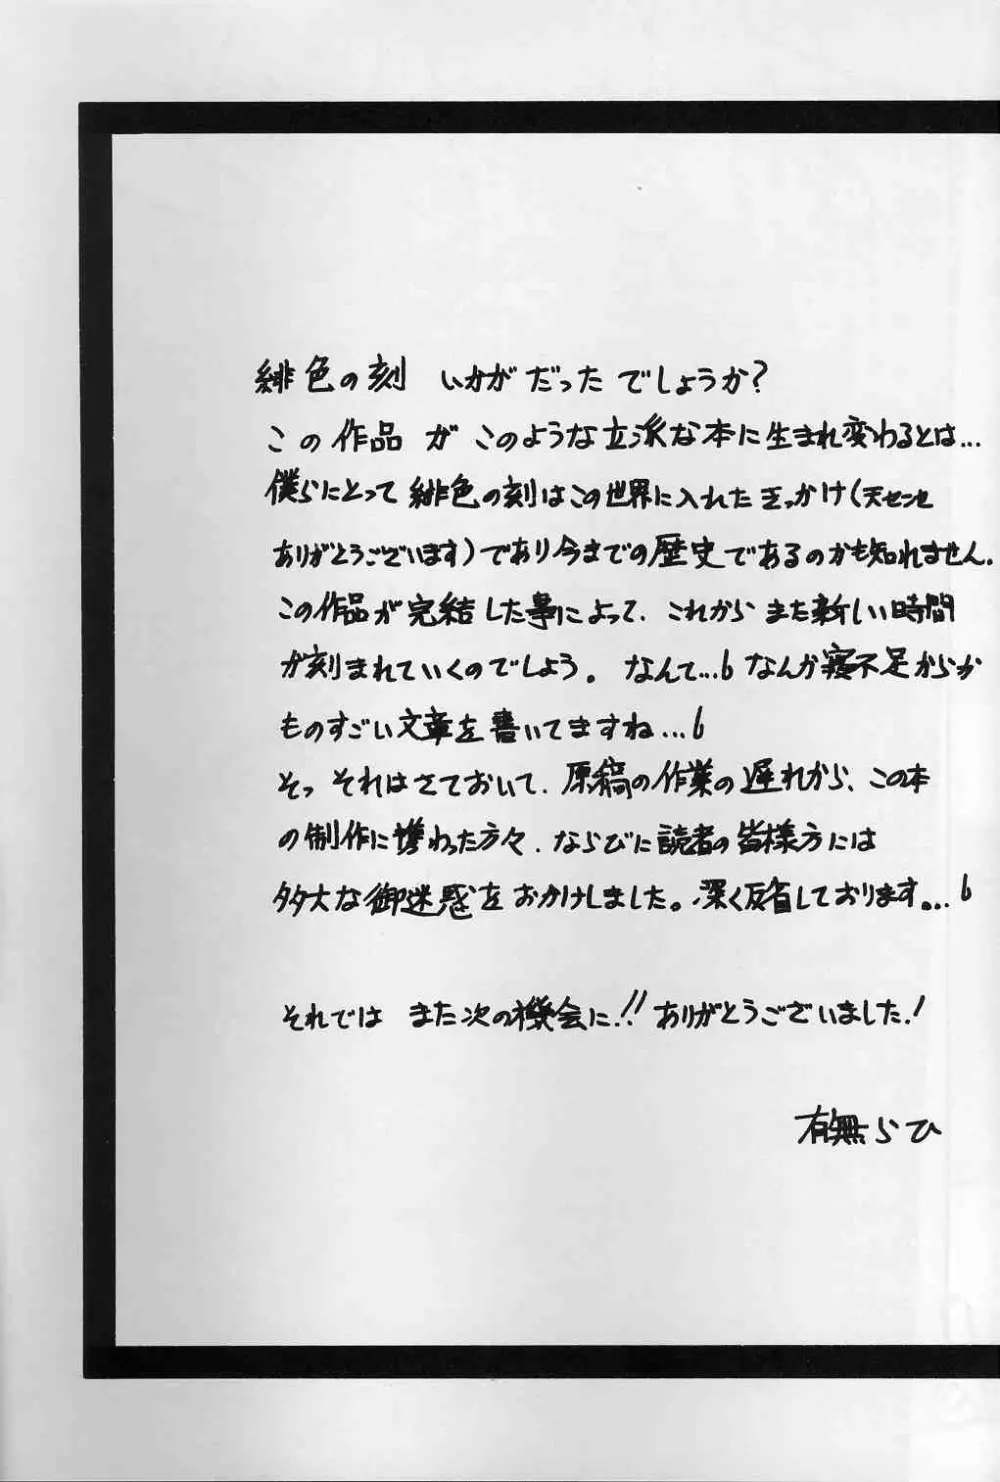 緋色の刻 いかがだったでしょうか?
この作品が このような立派な本に生まれ変わるとは...
僕らにとって 緋色の刻はこの世界に入れたきっかけ(天センセ
ありがとうございます)であり今までの歴史であるのかも知れません.
この作品が完結した事によって、これから また新しい時間
が刻まれていくのでしょう。なんて...6 なんか寝不足からか
ものすごい文章を書いてますね...6
そっ それはさておいて、原稿の作業の遅れから、この本
の制作に携わった方々、ならびに読者の皆様方には
多大な御迷惑をおかけしました。深く反省しております。...6
それでは また次の機会に!!ありがとうございました!
有無らひ